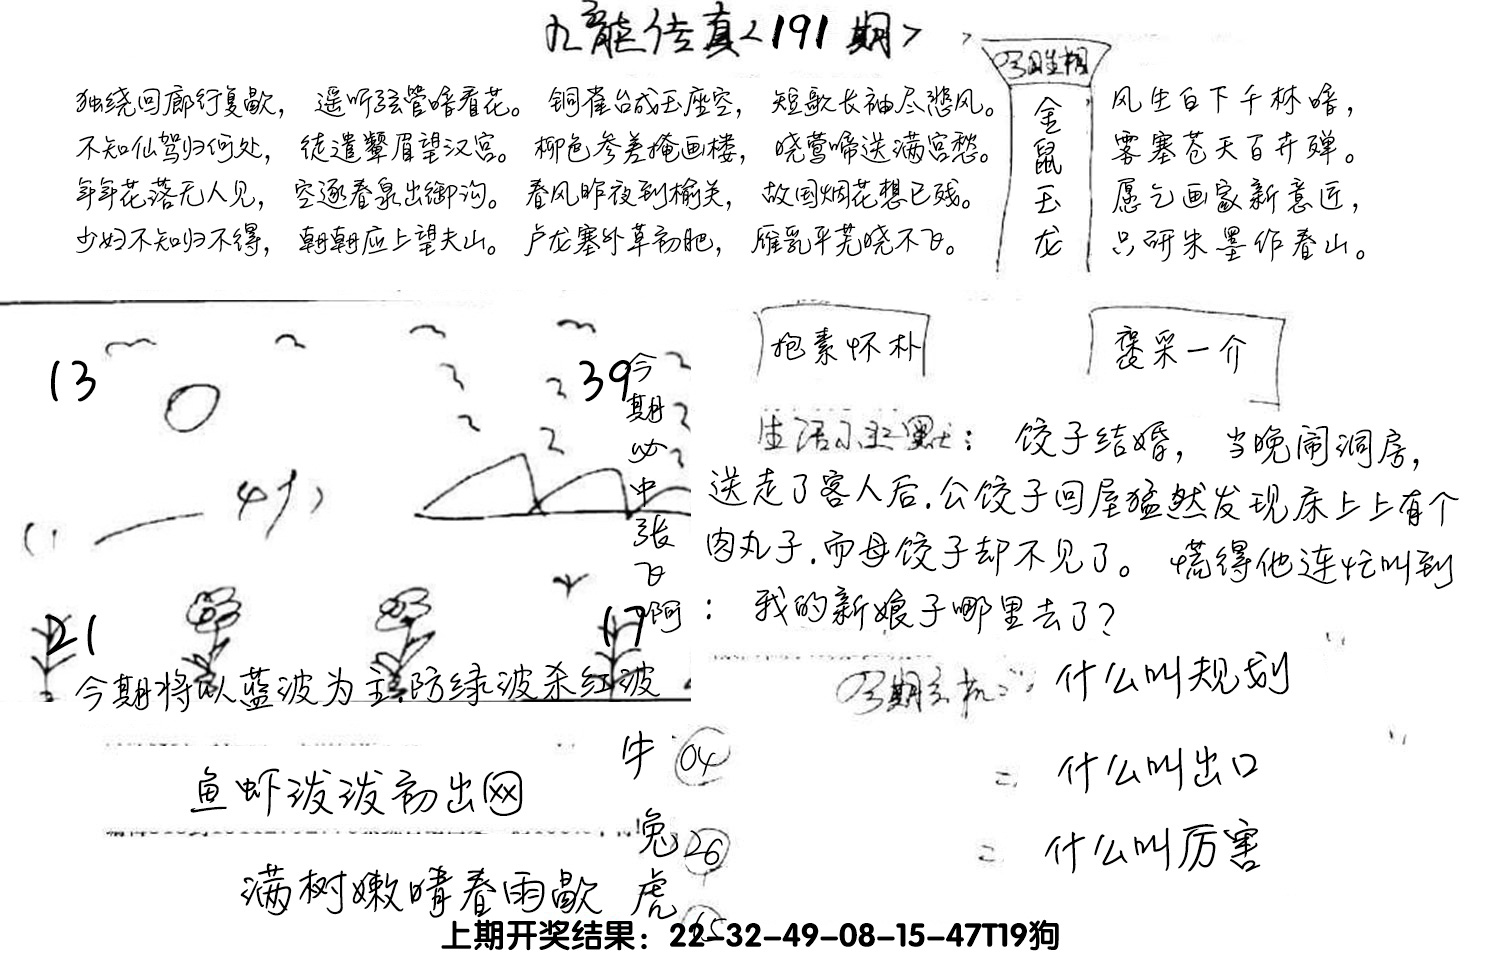 九龍传真<191期>
独绕回廊行复歇，遥听弦管暗看花。铜雀台成玉座空，短歌长袖尽悲风。
不知仙驾归何处，徒遣颦眉望汉宫。柳色参差掩画楼，晓莺啼送满宫愁。
年年花落无人见，空逐春泉出御沟。春风昨夜到榆关，故国烟花想已残。
少妇不知归不得，朝朝应上望夫山。卢龙塞外草初肥，雁乳平芜晓不飞。
金鼠玉龙
风生白下千林暗，
雾塞苍天百卉殚。
愿乞画家新意匠，
只研朱墨作春山。
13
39
今期必中张飞啊
21
17
今期将以蓝波为主防绿波杀红波
抱素怀朴
褒采一介
生活小幽默：饺子结婚，当晚闹洞房，
送走了客人后.公饺子回屋猛然发现床上上有个
肉丸子.而母饺子却不见了。慌得他连忙叫到
：我的新娘子哪里去了？
什么叫规划
二 什么叫出口
什么叫厉害
鱼虾泼泼初出网
满树嫩晴春雨歇
牛 04
兔 26
虎
上期开奖结果：22-32-49-08-15-47T19狗